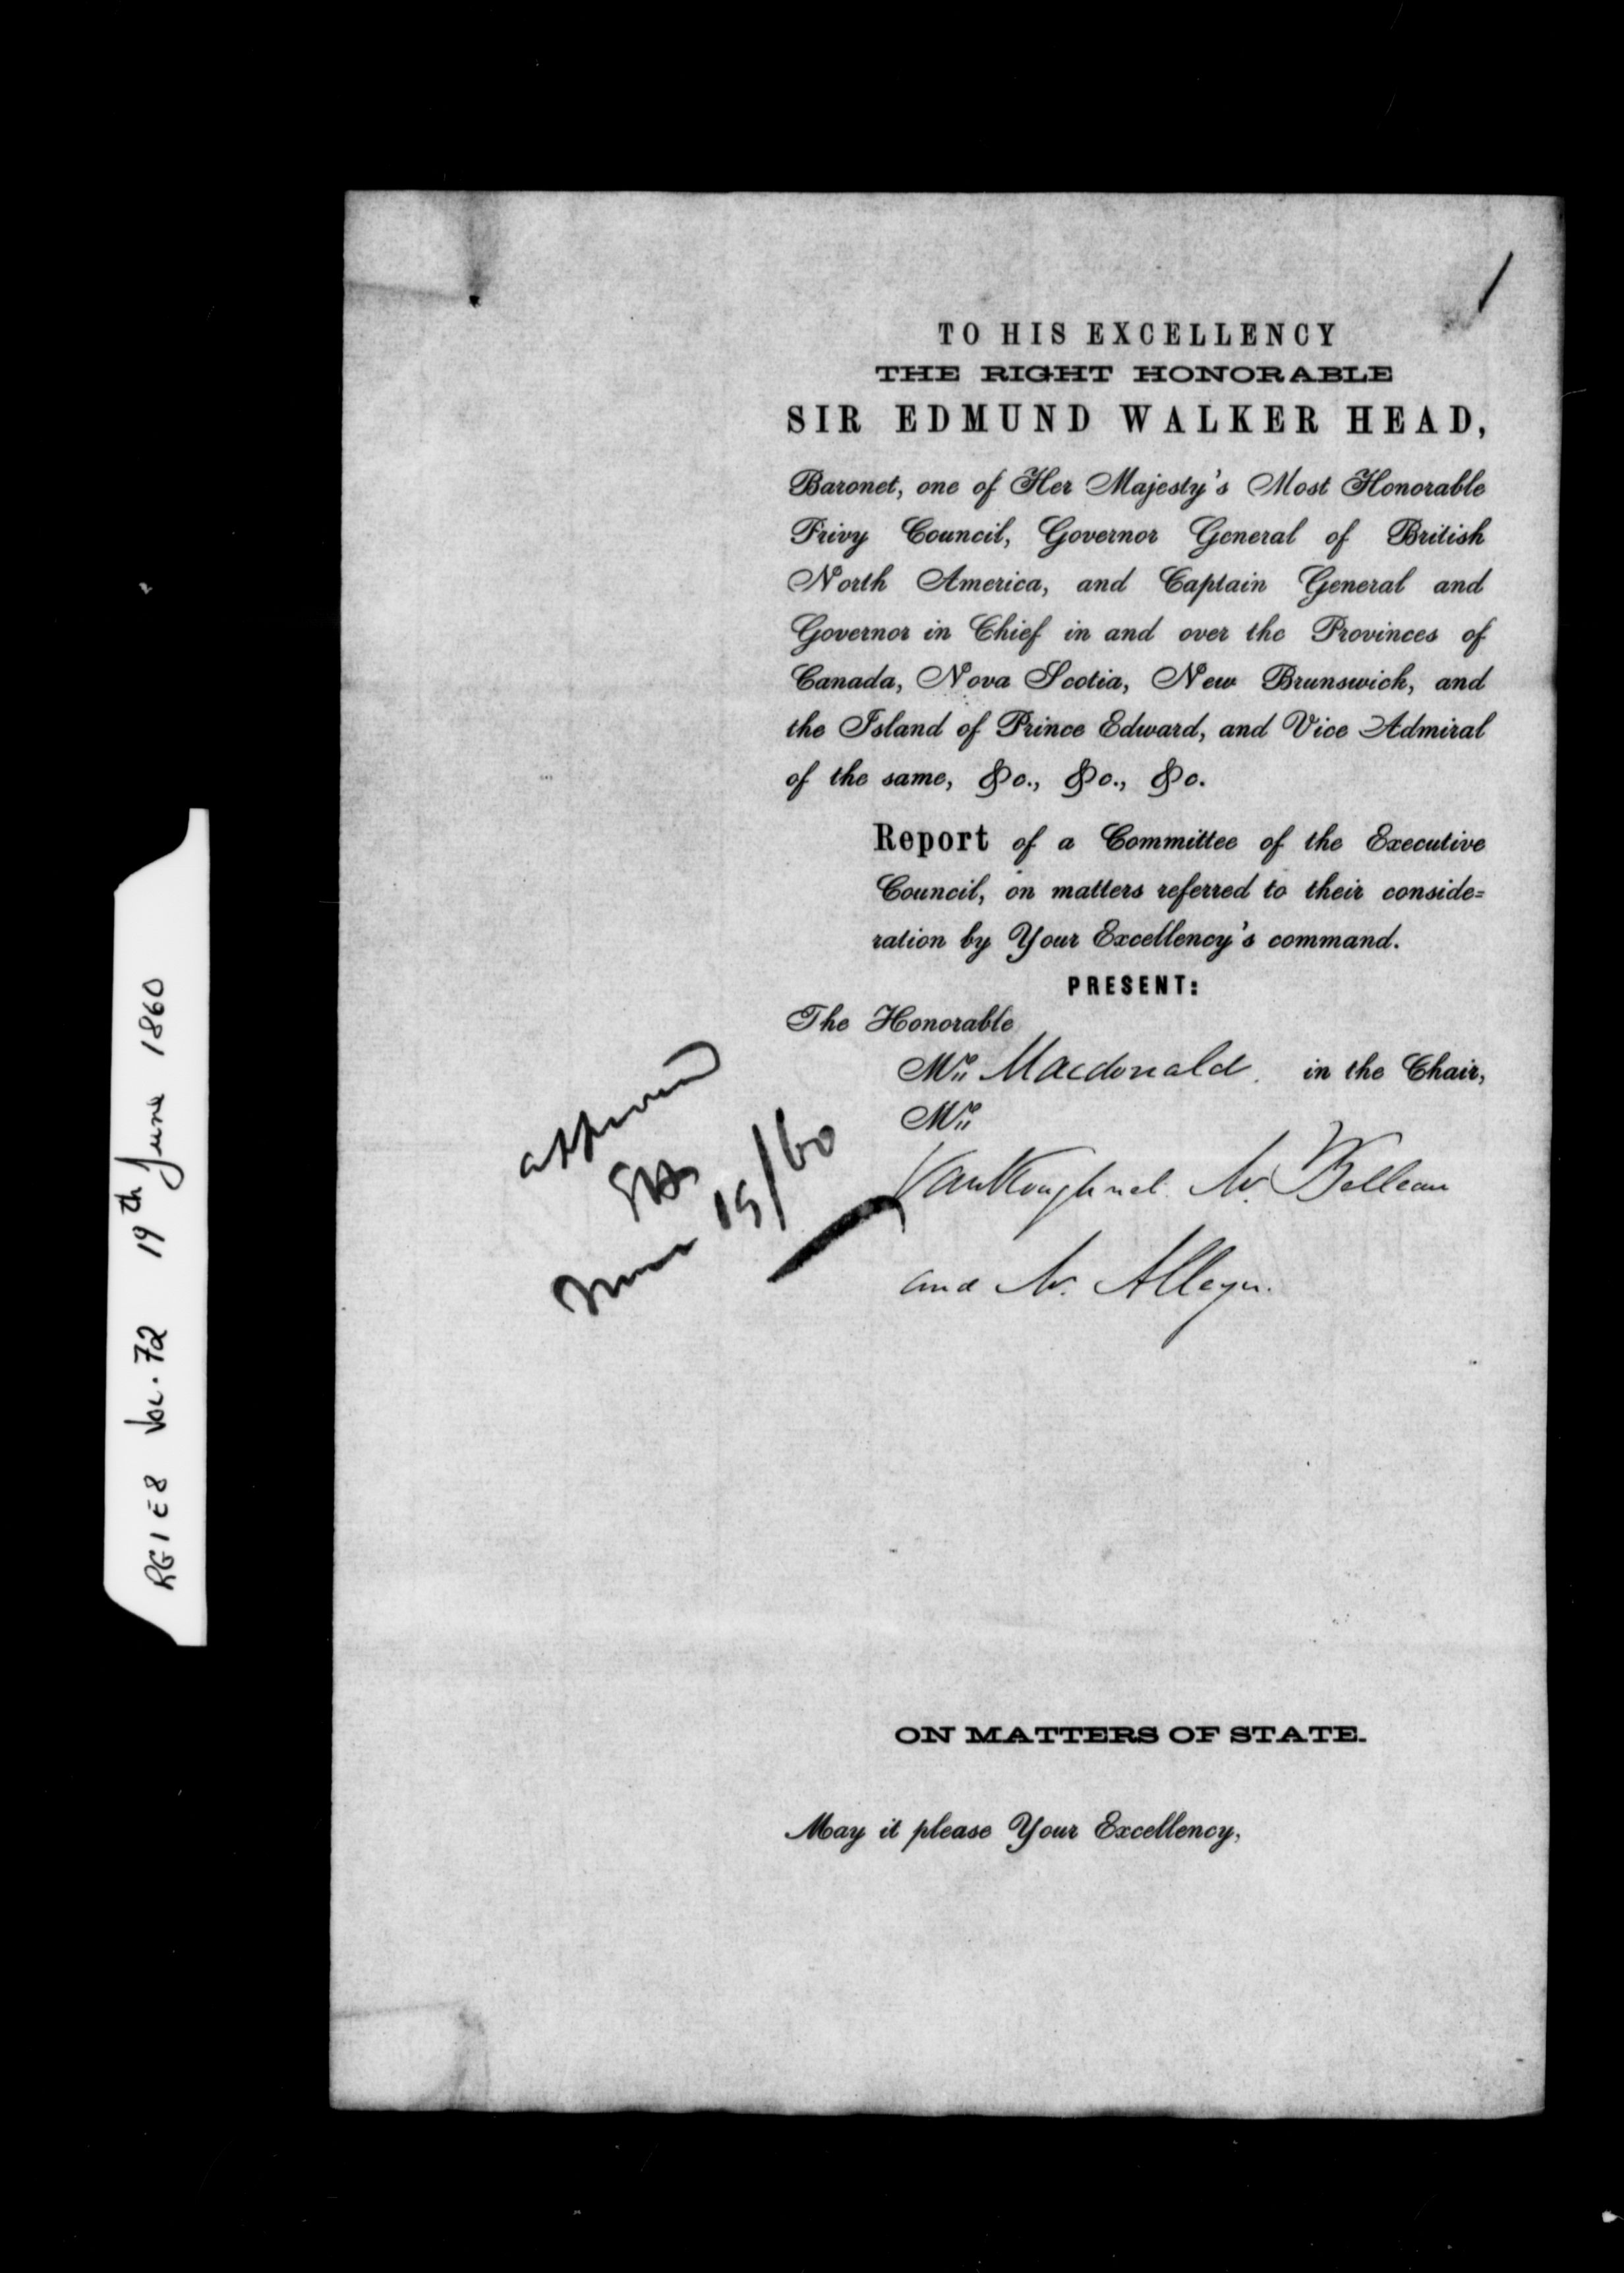 RG1 E8 Vol. 72 19th June 1860
TO HIS EXCELLENCY
THE RIGHT HONORABLE
SIR EDMUND WALKER HEAD,
Baronet, one of Her Majesty's Most Honorable
Privy Council, Governor General of British
North America, and Captain General and
Governor in Chief in and over the Provinces of
Canada, Nova Scotia, New Brunswick, and
the Island of Prince Edward, and Vice Admiral
of the same, &c., &c., &c.
Report of a Committee of the Executive
Council, on matters referred to their conside=
ration by Your Excellency's command.
PRESENT:
The Honorable
Mr. Macdonald. in the Chair,
Mr.
VanKoughnet. Mr. Belleau
and Mr. Alleyn.
approved
EH
June 19/60
ON MATTERS OF STATE.
May it please Your Excellency,